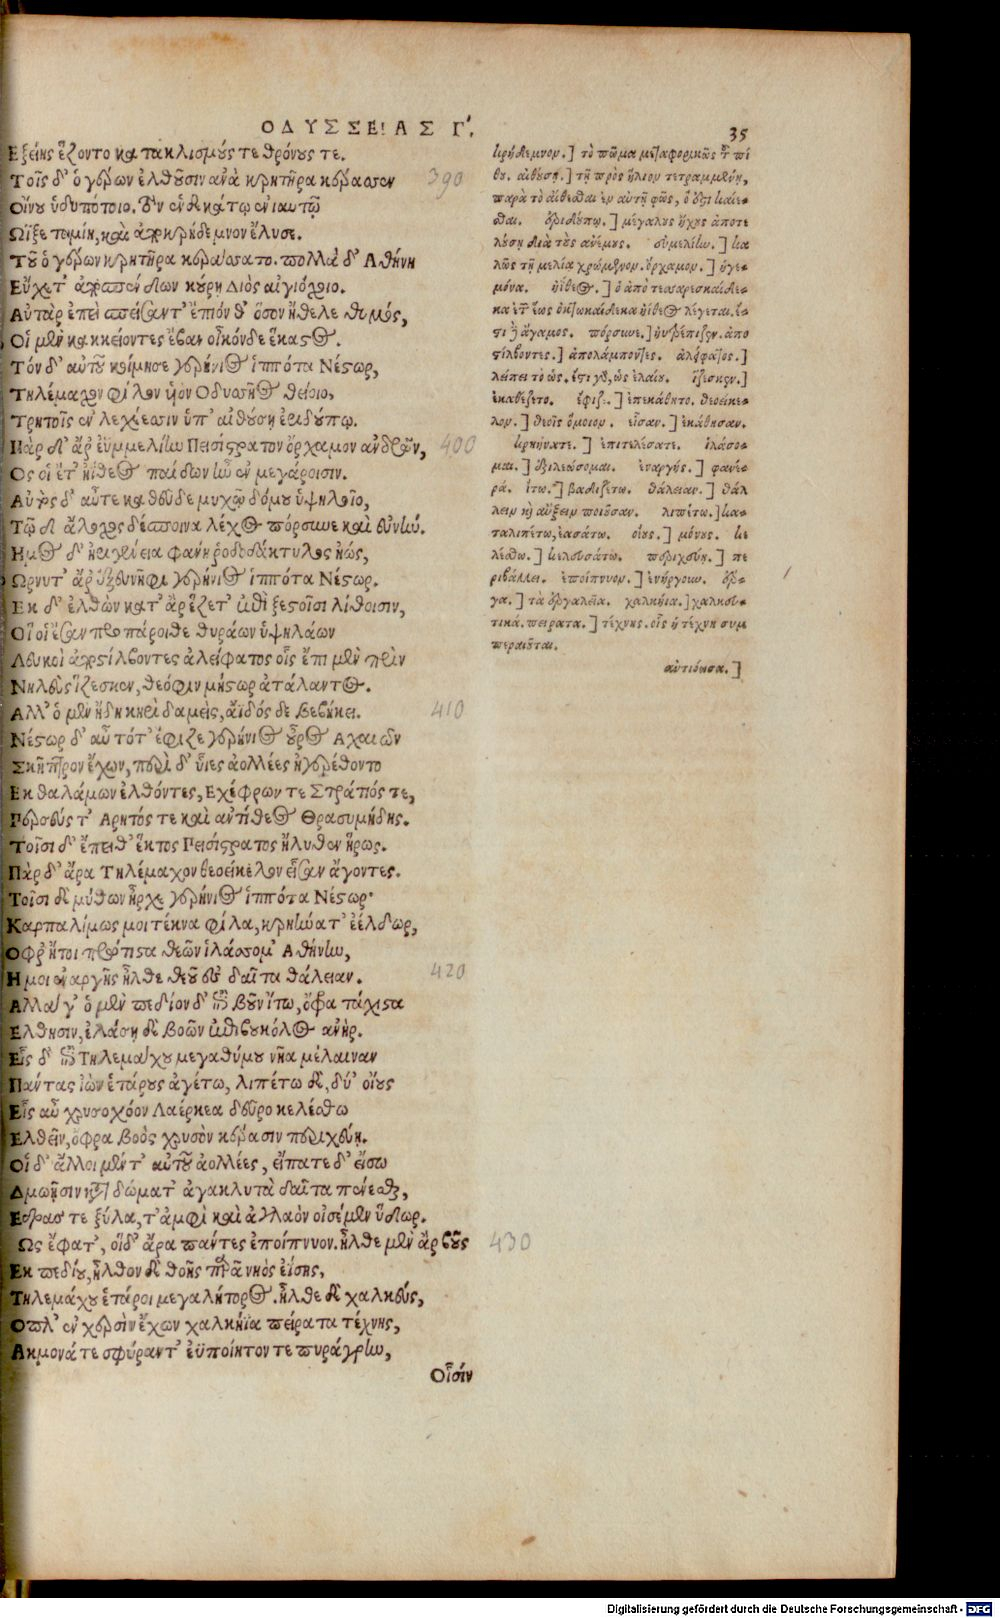 ΟΔΥΣΣΕΙΑΣ Γ.
35
Εξείης ἕζοντο κατὰ κλισμούς τε θρόνους τε.
Τοῖς δ' ὁ γέρων ἐλθοῦσιν ἀνὰ κρητῆρα κέρασσεν
390
Οἴνου ἡδυπότοιο, τὸν ἑνδεκάτῳ ἐνιαυτῷ
Ωϊξε ταμίη, καὶ ἀπὸ κρήδεμνον ἔλυσε.
Τοῦ ὁ γέρων κρητῆρα κεράσσατο. πολλὰ δ' Αθήνῃ
Εὔχετ' ἀποσπένδων κούρῃ Διὸς αἰγιόχοιο.
Αὐτὰρ ἐπεὶ σπεῖσαν τ' ἔπιόν θ' ὅσον ἤθελε θυμός,
Οἱ μὲν κακκείοντες ἔβαν οἶκόνδε ἕκαστος.
Τόν δ' αὐτοῦ κοίμησε γερήνιος ἱππότα Νέστωρ,
Τηλέμαχον φίλον υἱὸν Οδυσσῆος θείοιο,
Τρητοῖς ἐν λεχέεσσιν ὑπ' αἰθούσῃ ἐριδούπῳ.
Πὰρ δ' ἄρ ἐϋμμελίην Πεισίστρατον ὄρχαμον ἀνδρῶν,
400
Ος οἱ ἔτ' ἠΐθεος παίδων ἦν ἐν μεγάροισιν.
Αὐτὸς δ' αὖτε καθεῦδε μυχῷ δόμου ὑψηλοῖο,
Τῷ δ' ἄλοχος δέσποινα λέχος πόρσυνε καὶ εὐνήν.
Ημος δ' ἠριγένεια φάνη ῥοδοδάκτυλος ἠώς,
Ωρνυτ' ἄρ ἐξ εὐνῆφι γερήνιος ἱππότα Νέστωρ.
Εκ δ' ἐλθὼν κατ' ἂρ ἕζετ' ἐπὶ ξεστοῖσι λίθοισιν,
Οἵ οἱ ἔσαν προπάροιθε θυράων ὑψηλάων
Λευκοὶ ἀποστίλβοντες ἀλείφατος οἷς ἔπι μὲν πρὶν
Νηλεὺς ἵζεσκεν, θεόφιν μήστωρ ἀτάλαντος.
Αλλ' ὁ μὲν ἤδη κηρὶ δαμεὶς, ἄϊδόςδε βεβήκει.
410
Νέστωρ δ' αὖ τότ' ἐφῖζε γερήνιος οὖρος Αχαιῶν
Σκῆπτρον ἔχων, περὶ δ' υἷες ἀολλέες ἠγερέθοντο
Εκ θαλάμων ἐλθόντες, Εχέφρων τε Στράτιός τε,
Περσεύς τ' Αρητός τε καὶ ἀντίθεος Θρασυμήδης.
Τοῖσι δ' ἔπειθ' ἕκτος Πεισίστρατος ἤλυθεν ἥρως.
Πὰρ δ' ἄρα Τηλέμαχον θεοείκελον εἷσαν ἄγοντες.
Τοῖσι δὲ μύθων ἦρχε γερήνιος ἱππότα Νέστωρ·
Καρπαλίμως μοι τέκνα φίλα, κρηήνατ' ἐέλδωρ,
Οφρ' ἤτοι πρώτιστα θεῶν ἱλάσσομ' Αθήνην,
Η μοι ἐναργὴς ἦλθε θεοῦ ἐς δαῖτα θάλειαν.
420
Αλλ' ἄγ' ὁ μὲν πεδίονδ' ἐπὶ βοῦν ἴτω, ὄφρα τάχιστα
Ελθησιν, ἐλάσῃ δὲ βοῶν ἐπιβουκόλος ἀνήρ.
Εἷς δ' ἐπὶ Τηλεμάχου μεγαθύμου νῆα μέλαιναν
Πάντας ἰὼν ἑτάρους ἀγέτω, λιπέτω δὲ, δύ' οἴους
Εἷς αὖ χρυσοχόον Λαέρκεα δεῦρο κελέσθω
Ελθεῖν, ὄφρα βοὸς χρυσὸν κέρασιν περιχεύῃ.
Οἱ δ' ἄλλοι μένετ' αὐτοῦ ἀολλέες, εἴπατε δ' εἴσω
Δμωῇσιν κατὰ δώματ' ἀγακλυτὰ δαῖτα πένεσθαι,
Εδρας τε ξύλα, τ' ἀμφὶ καὶ ἀγλαὸν οἰσέμεν ὕδωρ.
Ως ἔφατ', οἵδ' ἄρα πάντες ἐποίπνυον. ἦλθε μὲν ἂρ βοῦς
430
Εκ πεδίου, ἦλθον δὲ θοῆς παρὰ νηὸς ἐΐσης,
Τηλεμάχου ἑτάροι μεγαλήτορος. ἦλθε δὲ χαλκεύς,
Οπλ' ἐν χερσὶν ἔχων χαλκήϊα πείρατα τέχνης,
Ακμονά τε σφύραν τ' ἐϋποίητόν τε πυράγρην,
Οἷσίν
κρήδεμνον.] τὸ πῶμα μεταφορικῶς τ πί
θου. αἰθούσῃ.] τῇ πρὸς ἥλιον τετραμμένῃ,
παρὰ τὸ αἴθεσθαι ἐν αὐτῇ φῶς, ὅ ἐστι καίε-
σθαι. ἐριδούπῳ.] μεγάλους ἤχους ἀποτε
λούσῃ διὰ τοὺς ἀνέμους. ἐυμελίην.] κα
λῶς τῇ μελίᾳ χρώμενον. ὄρχαμον.] ἡγε-
μόνα. ἠίθεος.] ὁ ἀπὸ τεσσαρεσκαίδε-
κα ἐτ ἕως ὀκτωκαίδεκα ἠίθεος λέγεται. ἔ-
στι ἢ ἄγαμος. πόρσυνε.] ηὐτρέπιζεν. ἀπο
στίλβοντες.] ἀπολάμποντες. ἀλείφατος.]
λείπει τὸ ὡς. ἔστι γὰρ, ὡς ἐλαίου. ἵζεσκεν.]
ἐκαθέζετο. ἐφῖζε.] ἐπεκάθητο. θεοείκε-
λον.] θεοῖς ὅμοιον. εἷσαν.] ἐκάθησαν.
κρηήνατε.] ἐπιτελέσατε. ἱλάσσο-
μαι.] ἐξιλεώσομαι. ἐναργής.] φανε-
ρά. ἴτω.] βαδιζέτω. θάλειαν.] θάλ
λειν καὶ αὔξειν ποιοῦσαν. λιπέτω.] κα-
ταλιπέτω, ἐασάτω. οἴους.] μόνους. κε
λέσθω.] κελευσάτω. περιχεύῃ.] πε
ριβάλλει. ἐποίπνυον.] ἐνήργουν. ὄρ-
γα.] τὰ ἐργαλεῖα. χαλκήια.] χαλκευ-
τικά. πείρατα.] τέχνης. οἷς ἡ τέχνη συμ
περαιοῦται.
ἀντιόωσα.]
Digitalisierung gefördert durch die Deutsche Forschungsgemeinschaft - DFG